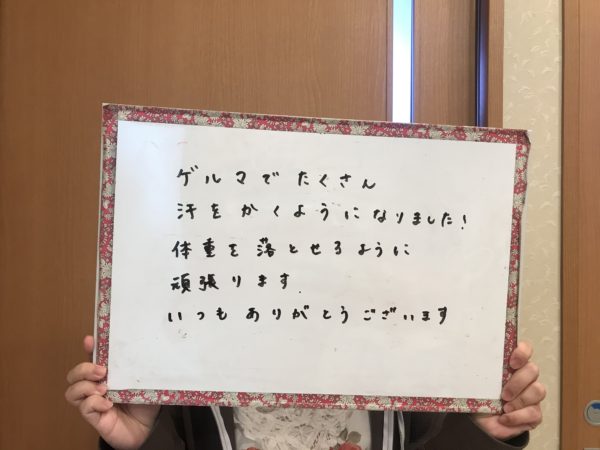 ゲルマでたくさん
汗をかくようになりました!
体重を落とせるように
頑張ります.
いつもありがとうございます